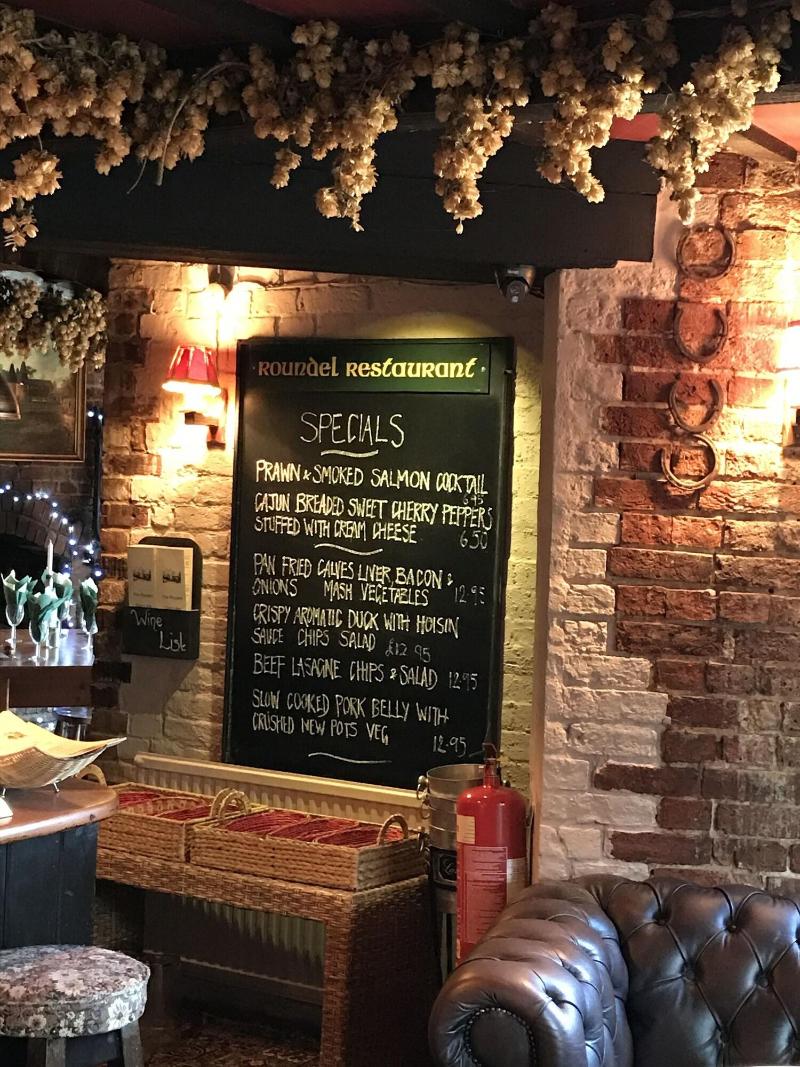 Roundel Restaurant
SPECIALS
PRAWN & SMOKED SALMON COCKTAIL
6.95
CAJUN BREADED SWEET CHERRY PEPPERS
STUFFED WITH CREAM CHEESE 6.50
PAN FRIED CALVES LIVER, BACON &
ONIONS MASH VEGETABLES 12.95
CRISPY AROMATIC DUCK WITH HOISIN
SAUCE CHIPS SALAD £12.95
BEEF LASAGNE CHIPS & SALAD 12.95
SLOW COOKED PORK BELLY WITH
CRUSHED NEW POTS VEG
12.95
Wine
List